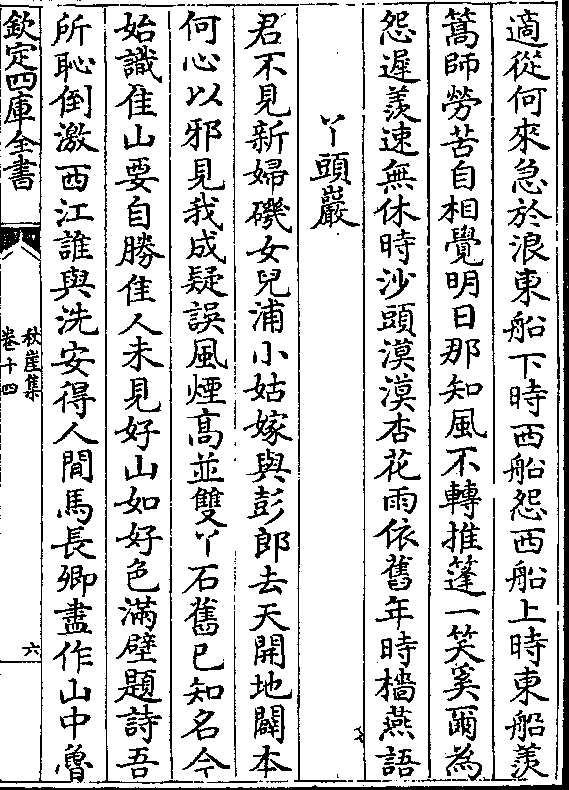 適從何來急於浪東船下時西船怨西船上時東船羨
篙師勞苦自相覺明日那知風不轉推篷一笑奚爾為
怨遲羨速無休時沙頭漠漠杏花雨依舊年時檣燕語
丫頭巖
君不見新婦磯女兒浦小姑嫁與彭郎去天開地闢本
何心以邪見我成疑誤風煙高並雙丫石舊已知名今
始識佳山要自勝佳人未見好山如好色滿壁題詩吾
所恥倒激西江誰與洗安得人間馬長卿盡作山中魯
欽定四庫全書
秋崖集
卷十四
六